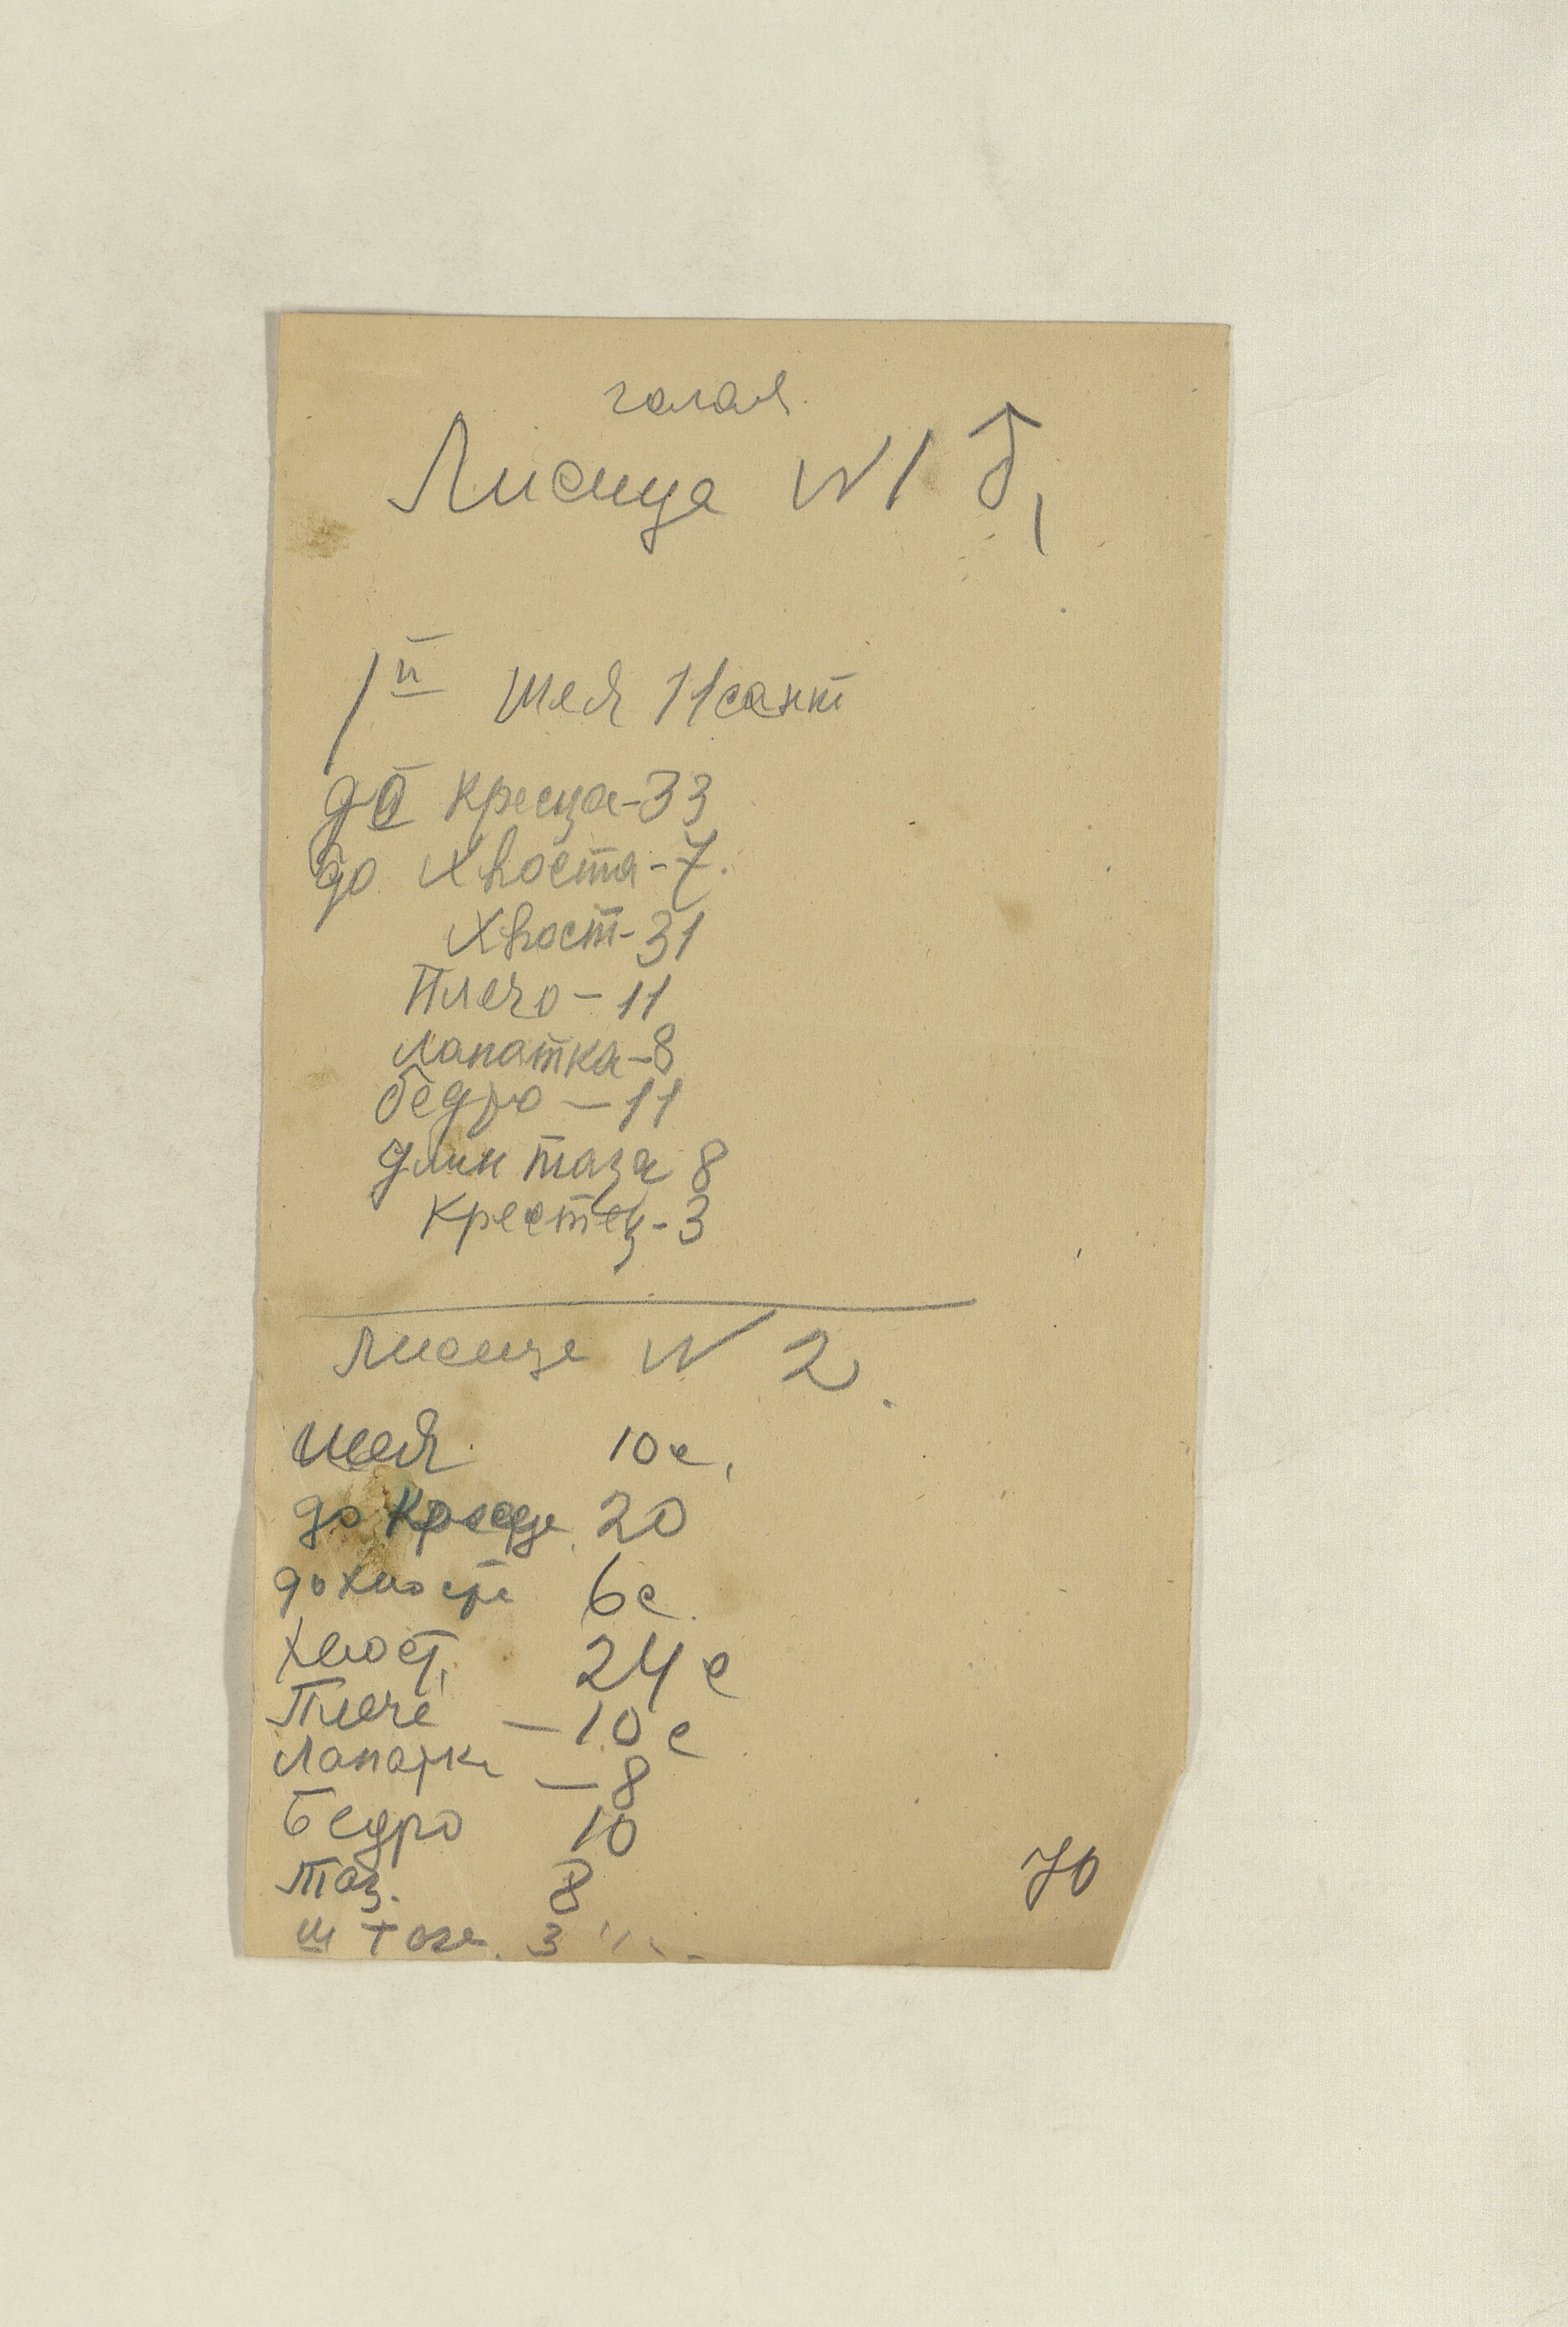 голая
Лисица N 1 ♂,
1й шея 11 сант
до кресца - 33
до хвоста - 7.
Хвост - 31
Плечо - 11
лапатка - 8
бедро - 11
длин таза 8
Крестец - 3
Лисица N 2.
шея 10 с,
до Кресца 20
до хвоста 6 с.
хвост, 24 с
Плече - 10 с
лапатка - 8
Бедро 10
Таз. 8
3
70